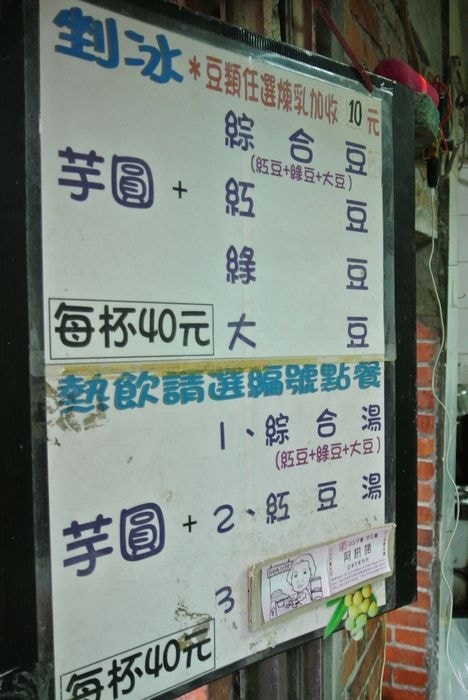 剉冰 *豆類任選煉乳加收 10 元
綜合豆
(紅豆+綠豆+大豆)
芋圓 + 紅豆
綠豆
每杯40元 大豆
熱飲請選編號點餐
1、綜合湯
(紅豆+綠豆+大豆)
芋圓 + 2、紅豆湯
3
每杯40元